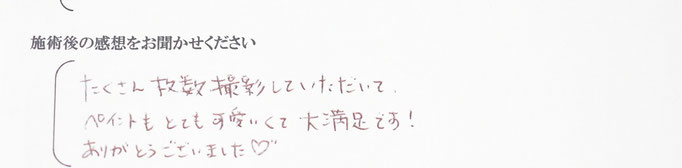 施術後の感想をお聞かせください
たくさん枚数撮影していただいて、
ペイントもとても可愛いくて大満足です!
ありがとうございました♡